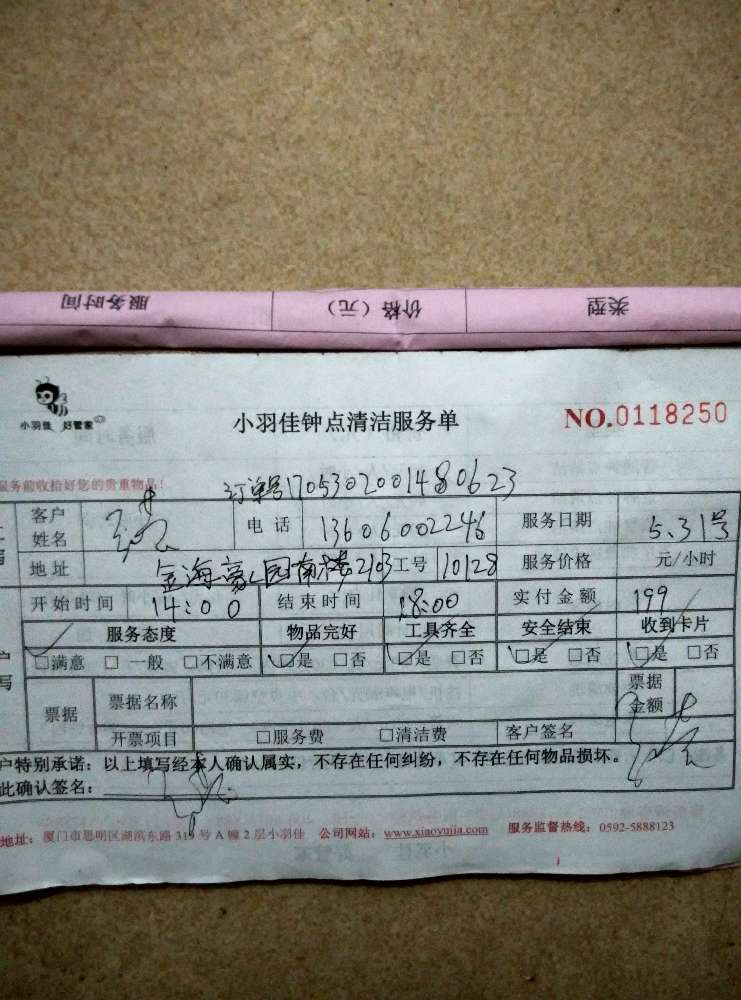 服务时间 价格（元） 类型
小羽佳 好管家
小羽佳钟点清洁服务单 NO.0118250
服务前收拾好您的贵重物品！
订单号1705302001480623
客户姓名 电话 13606002246 服务日期 5.31号
地址 金海豪园南楼2103 工号 10128 服务价格 元/小时
开始时间 14:00 结束时间 18:00 实付金额 199
服务态度 物品完好 工具齐全 安全结束 收到卡片
□满意 □一般 □不满意 □是 □否 □是 □否 □是 □否 □是 □否
票据 票据名称 票据金额
开票项目 □服务费 □清洁费 客户签名
户特别承诺：以上填写经本人确认属实，不存在任何纠纷，不存在任何物品损坏。
此确认签名：
地址：厦门市思明区湖滨东路31 号A幢2层小羽佳 公司网站：www.xiaoyujia.com 服务监督热线：0592-5888123